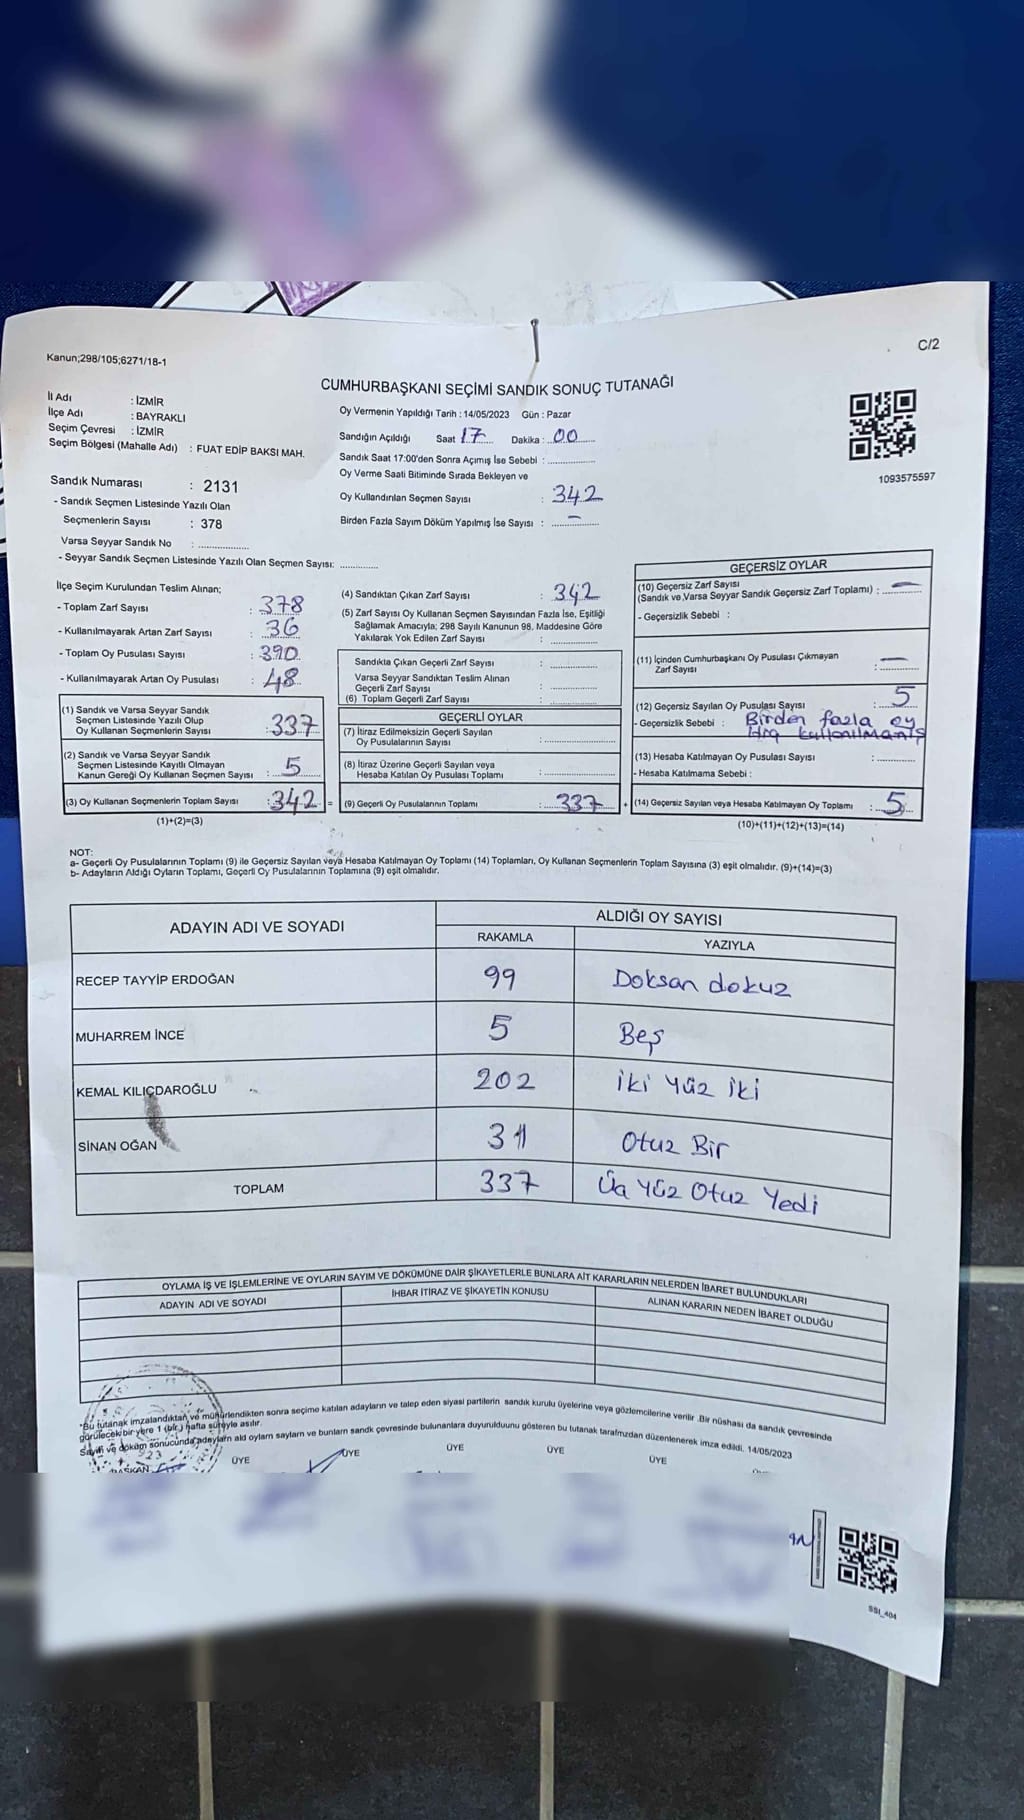 Kanun;298/105;6271/18-1
C/2
CUMHURBAŞKANI SEÇİMİ SANDIK SONUÇ TUTANAĞI
İl Adı : İZMİR
İlçe Adı : BAYRAKLI
Seçim Çevresi : İZMİR
Seçim Bölgesi (Mahalle Adı) : FUAT EDİP BAKSI MAH.
Oy Vermenin Yapıldığı Tarih : 14/05/2023 Gün : Pazar
Sandığın Açıldığı Saat 17 Dakika : 00
Sandık Saat 17:00'den Sonra Açımış İse Sebebi :
Oy Verme Saati Bitiminde Sırada Bekleyen ve
Oy Kullandırılan Seçmen Sayısı : 342
Birden Fazla Sayım Döküm Yapılmış İse Sayısı : -
1093575597
Sandık Numarası : 2131
- Sandık Seçmen Listesinde Yazılı Olan
Seçmenlerin Sayısı : 378
Varsa Seyyar Sandık No :
- Seyyar Sandık Seçmen Listesinde Yazılı Olan Seçmen Sayısı:
İlçe Seçim Kurulundan Teslim Alınan;
- Toplam Zarf Sayısı : 378
- Kullanılmayarak Artan Zarf Sayısı : 36
- Toplam Oy Pusulası Sayısı : 390
- Kullanılmayarak Artan Oy Pusulası : 48
(1) Sandık ve Varsa Seyyar Sandık
Seçmen Listesinde Yazılı Olup
Oy Kullanan Seçmenlerin Sayısı : 337
(2) Sandık ve Varsa Seyyar Sandık
Seçmen Listesinde Kayıtlı Olmayan
Kanun Gereği Oy Kullanan Seçmen Sayısı : 5
(3) Oy Kullanan Seçmenlerin Toplam Sayısı : 342 =
(1)+(2)=(3)
(4) Sandıktan Çıkan Zarf Sayısı : 342
(5) Zarf Sayısı Oy Kullanan Seçmen Sayısından Fazla İse, Eşitliği
Sağlamak Amacıyla; 298 Sayılı Kanunun 98. Maddesine Göre
Yakılarak Yok Edilen Zarf Sayısı :
Sandıkta Çıkan Geçerli Zarf Sayısı :
Varsa Seyyar Sandıktan Teslim Alınan
Geçerli Zarf Sayısı :
(6) Toplam Geçerli Zarf Sayısı :
GEÇERLİ OYLAR
(7) İtiraz Edilmeksizin Geçerli Sayılan
Oy Pusulalarının Sayısı :
(8) İtiraz Üzerine Geçerli Sayılan veya
Hesaba Katılan Oy Pusulası Toplamı :
(9) Geçerli Oy Pusulalarının Toplamı : 337 +
GEÇERSİZ OYLAR
(10) Geçersiz Zarf Sayısı
(Sandık ve Varsa Seyyar Sandık Geçersiz Zarf Toplamı) : -
- Geçersizlik Sebebi :
(11) İçinden Cumhurbaşkanı Oy Pusulası Çıkmayan
Zarf Sayısı : -
(12) Geçersiz Sayılan Oy Pusulası Sayısı : 5
- Geçersizlik Sebebi : Birden fazla oy
kullanılmamış
(13) Hesaba Katılmayan Oy Pusulası Sayısı :
- Hesaba Katılmama Sebebi :
(14) Geçersiz Sayılan veya Hesaba Katılmayan Oy Toplamı : 5
(10)+(11)+(12)+(13)=(14)
NOT:
a- Geçerli Oy Pusulalarının Toplamı (9) ile Geçersiz Sayılan veya Hesaba Katılmayan Oy Toplamı (14) Toplamları, Oy Kullanan Seçmenlerin Toplam Sayısına (3) eşit olmalıdır. (9)+(14)=(3)
b- Adayların Aldığı Oyların Toplamı, Geçerli Oy Pusulalarının Toplamına (9) eşit olmalıdır.
ADAYIN ADI VE SOYADI
ALDIĞI OY SAYISI
RAKAMLA YAZIYLA
RECEP TAYYİP ERDOĞAN 99 Doksan dokuz
MUHARREM İNCE 5 Beş
KEMAL KILIÇDAROĞLU 202 İki Yüz İki
SİNAN OĞAN 31 Otuz Bir
TOPLAM 337 Üç Yüz Otuz Yedi
OYLAMA İŞ VE İŞLEMLERİNE VE OYLARIN SAYIM VE DÖKÜMÜNE DAİR ŞİKAYETLERLE BUNLARA AİT KARARLARIN NELERDEN İBARET BULUNDUKLARI
ADAYIN ADI VE SOYADI İHBAR İTİRAZ VE ŞİKAYETİN KONUSU ALINAN KARARIN NEDEN İBARET OLDUĞU
"Bu tutanak imzalandıktan ve mühürlendikten sonra seçime katılan adayların ve talep eden siyasi partilerin sandık kurulu üyelerine veya gözlemcilerine verilir .Bir nüshası da sandık çevresinde
görülecek bir yere 1 (bir) hafta süreyle asılır.
Sayım ve döküm sonucunda adayların ald oyların sayların ve bunların sandk çevresinde bulunanlara duyurulduunu gösteren bu tutanak tarafmzdan düzenlenerek imza edildi. 14/05/2023
BAŞKAN ÜYE ÜYE ÜYE ÜYE ÜYE
SSI_404